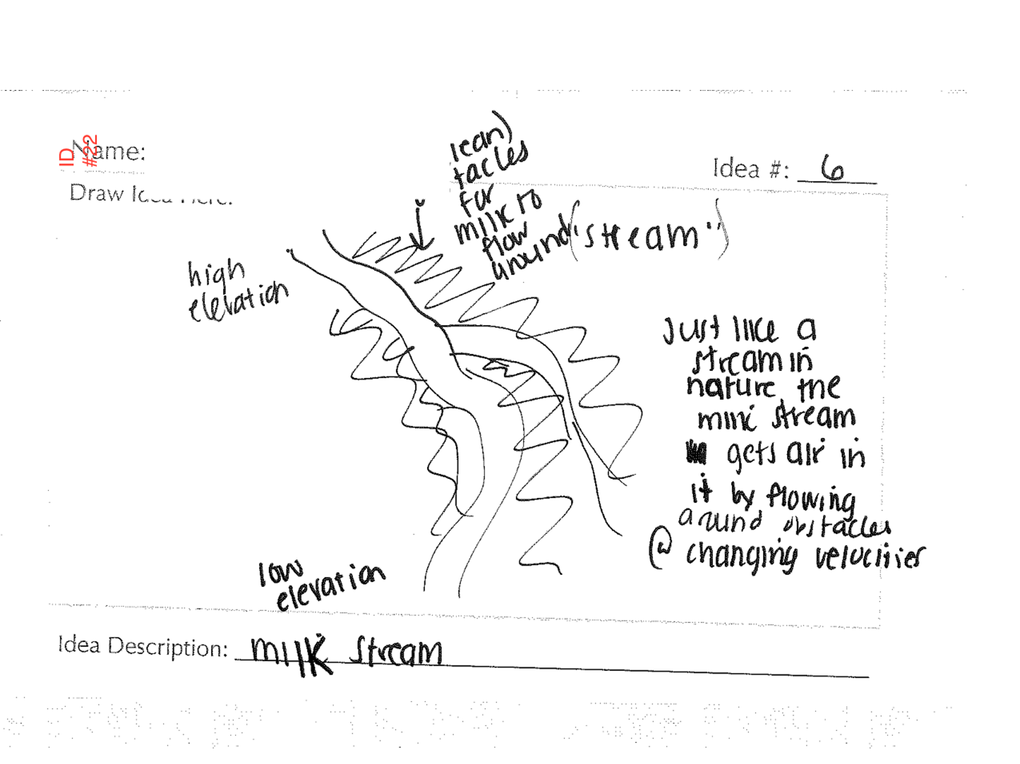 ID
#22
Name:
Idea #: 6
tacles
for
milk to
flow
around
("stream")
high
elevation
Just like a
stream in
nature the
stream
gets air in
it by flowing
around obstacles
@ changing velocities
low
elevation
Idea Description: milk stream